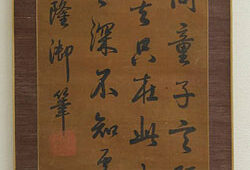 問童子言師
去只在此山
深不知處
隆御筆